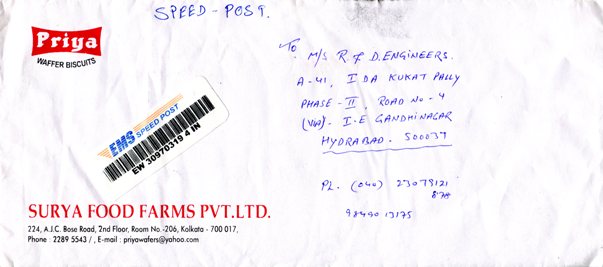 SPEED - POST.
Priya
WAFFER BISCUITS
EMS SPEED POST
EW 30970319 4 IN
To
M/S R & D. ENGINEERS.
A-41, I DA KUKAT PALLY
PHASE - II, ROAD No - 4
(VIA) - I.E GANDHINAGAR
HYDRABAD. 500037
PL. (040) 23078121
8178
98490 13175
SURYA FOOD FARMS PVT.LTD.
224, A.J.C. Bose Road, 2nd Floor, Room No.-206, Kolkata - 700 017,
Phone : 2289 5543 / , E-mail : priyawafers@yahoo.com